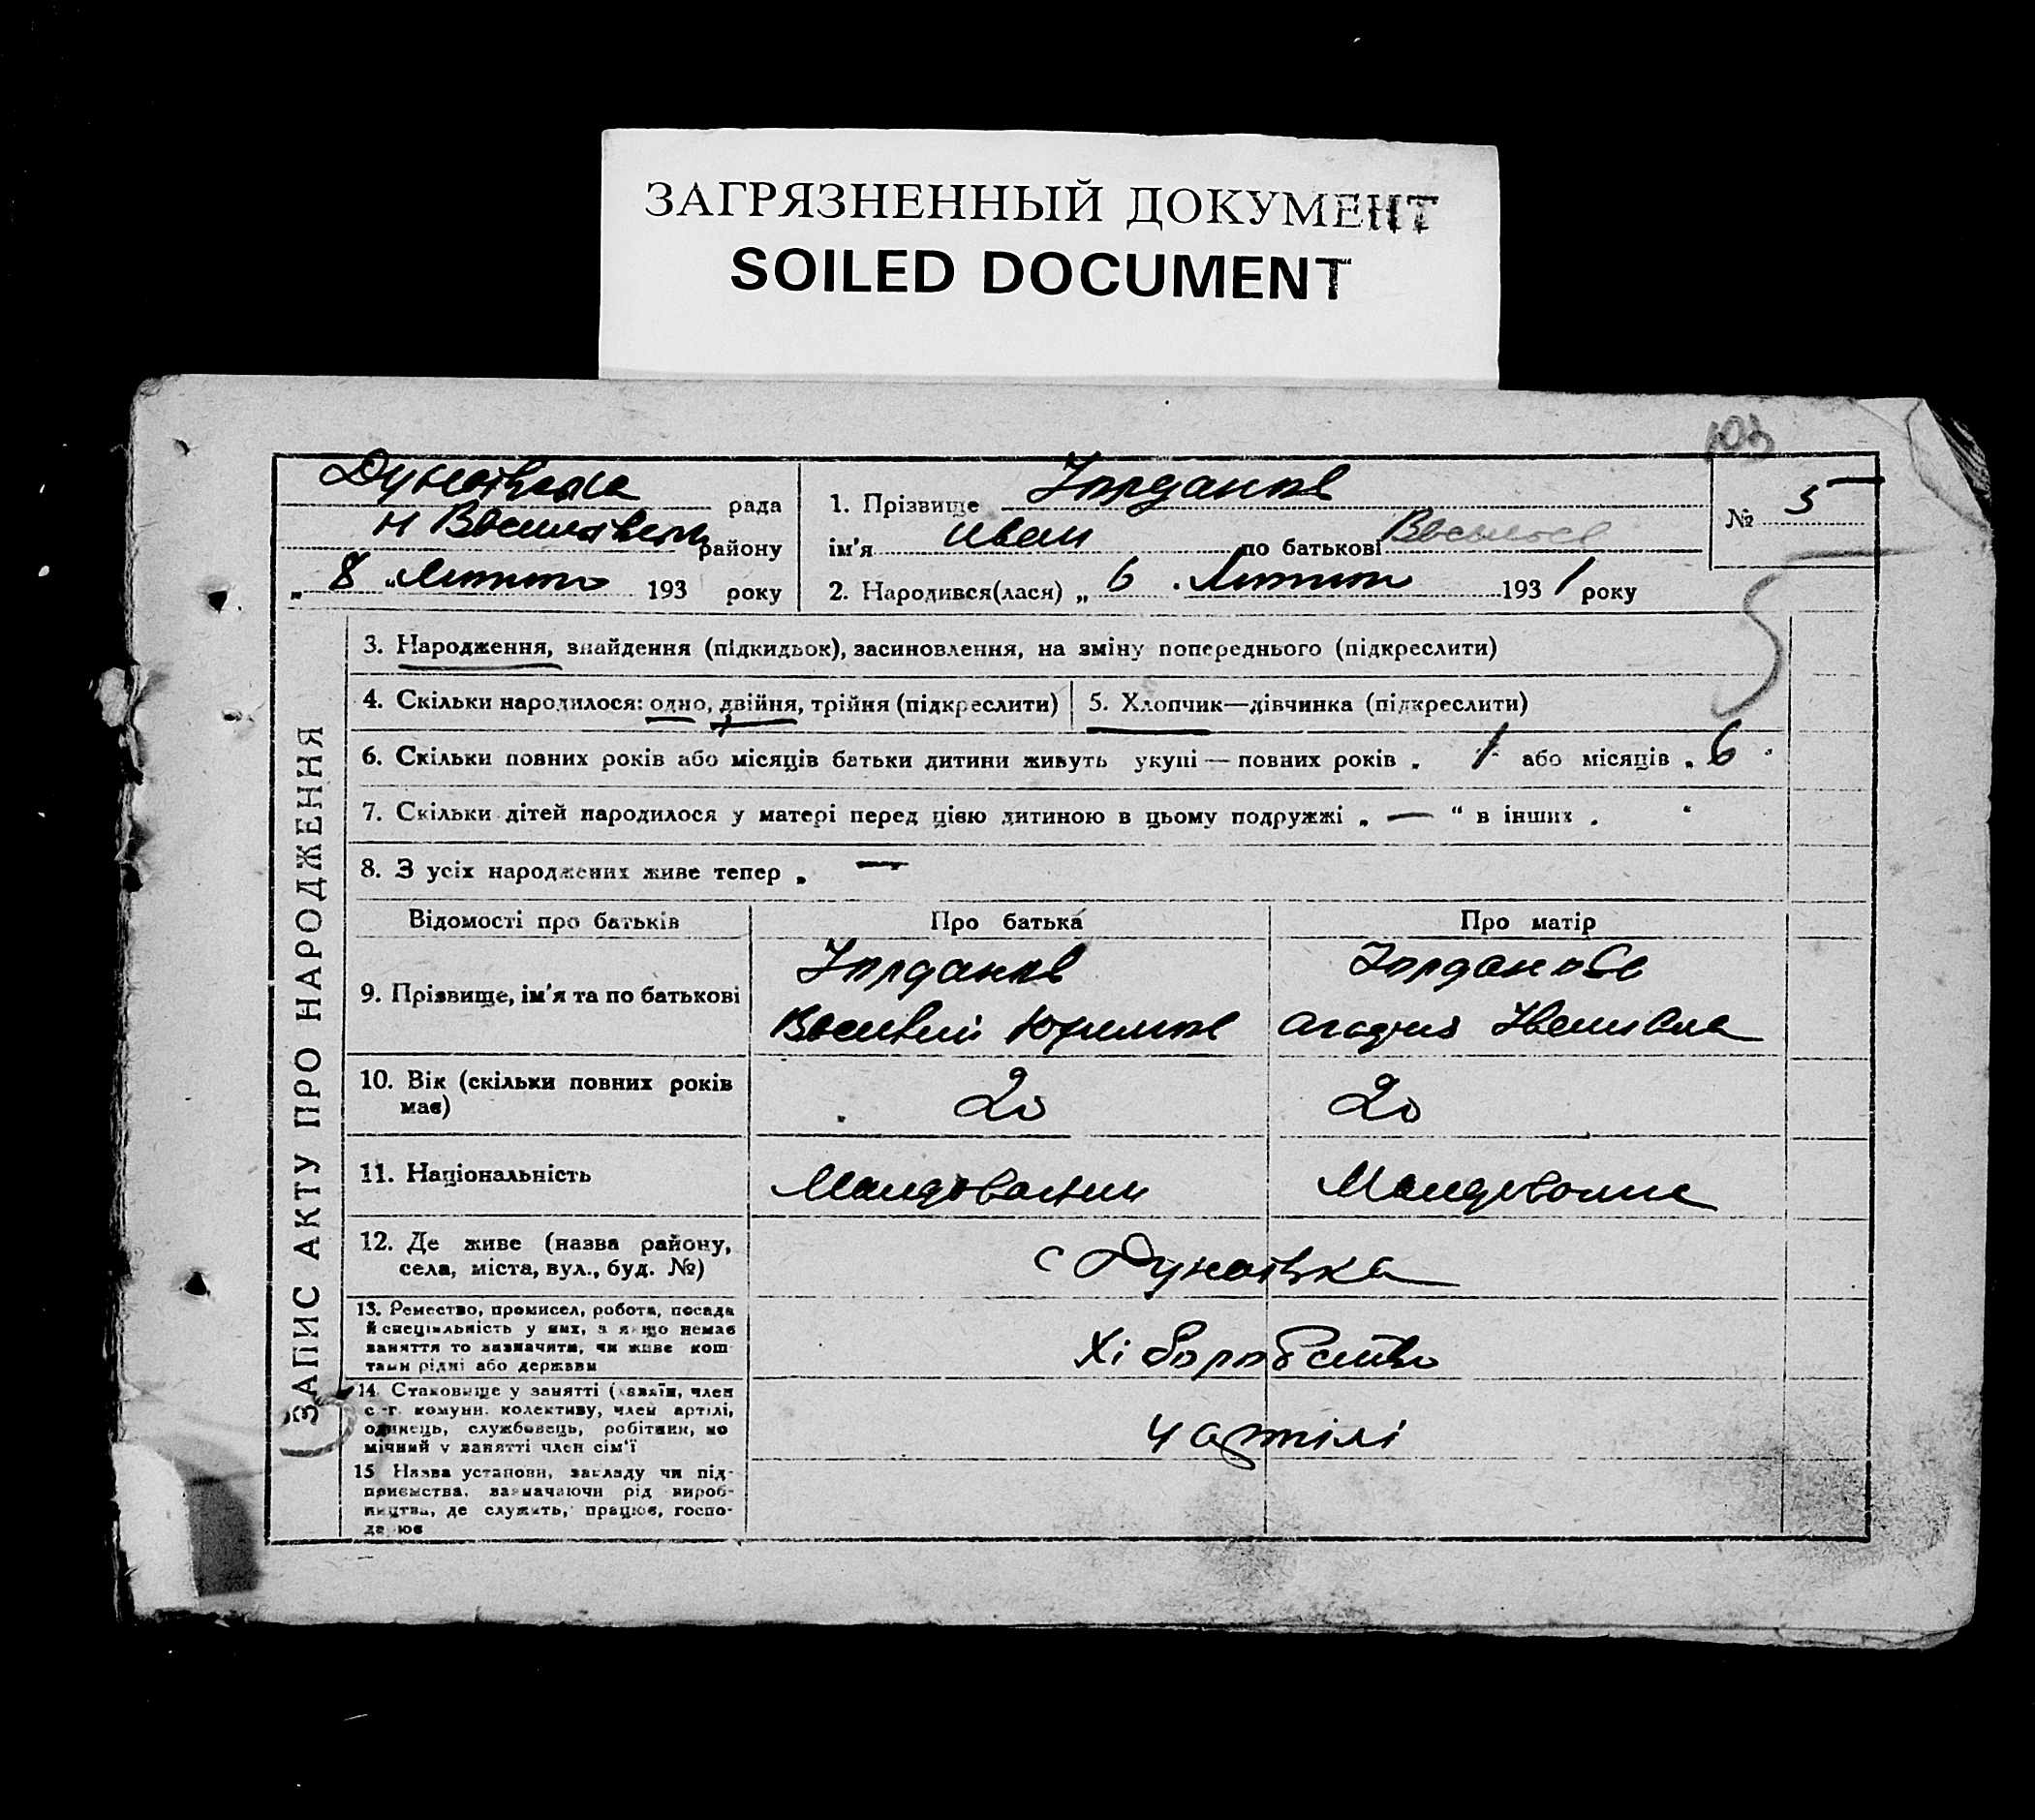 ЗАГРЯЗНЕННЫЙ ДОКУМЕНТ
SOILED DOCUMENT
103
рада
района
„ 8 „ 193 року
1. Прізвище Іорданов
ім'я Иван по батькові
2. Народився(лася) „ 6 . 193 1 року
№ 5
ЗАПИС АКТУ ПРО НАРОДЖЕННЯ
3. Народження, знайдення (підкидьок), засиновлення, на зміну попереднього (підкреслити)
4. Скільки народилося: одно, двійня, трійня (підкреслити)
5. Хлопчик—дівчинка (підкреслити)
6. Скільки повних років або місяців батьки дитини живуть укупі — повних років „ 1 або місяців „ 6 "
7. Скільки дітей народилося у матері перед цією дитиною в цьому подружжі „ — “ в інших „ “
8. З усіх народжених живе тепер „ —
Відомості про батьків Про батька Про матір
9. Прізвище, ім'я та по батькові
Іорданов Іорданова
10. Вік (скільки повних років має)
20 20
11. Національність
12. Де живе (назва району,
села, міста, вул., буд. №)
с Дунаївка
13. Ремество, промисел, робота, посада
й спеціяльність у них, а якщо немає
заняття то зазначити, чи живе кош
тами рідні або держави
Хіборобство
14. Становище у занятті (хазяїн, член
с.-г. комуни, колективу, член артілі,
одинець, службовець, робітник, по
мічний у занятті член сім'ї
ч артілі
15 Назва установи, закладу чи під-
приємства, зазначаючи рід вироб-
ництва, де служить, працює, госпо-
дарює